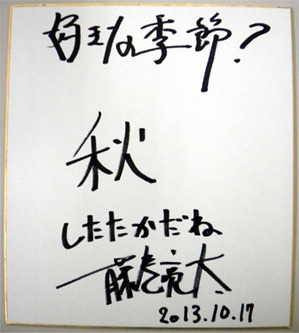 好きな季節?
秋
したたかだね
藤巻亮太
2013.10.17